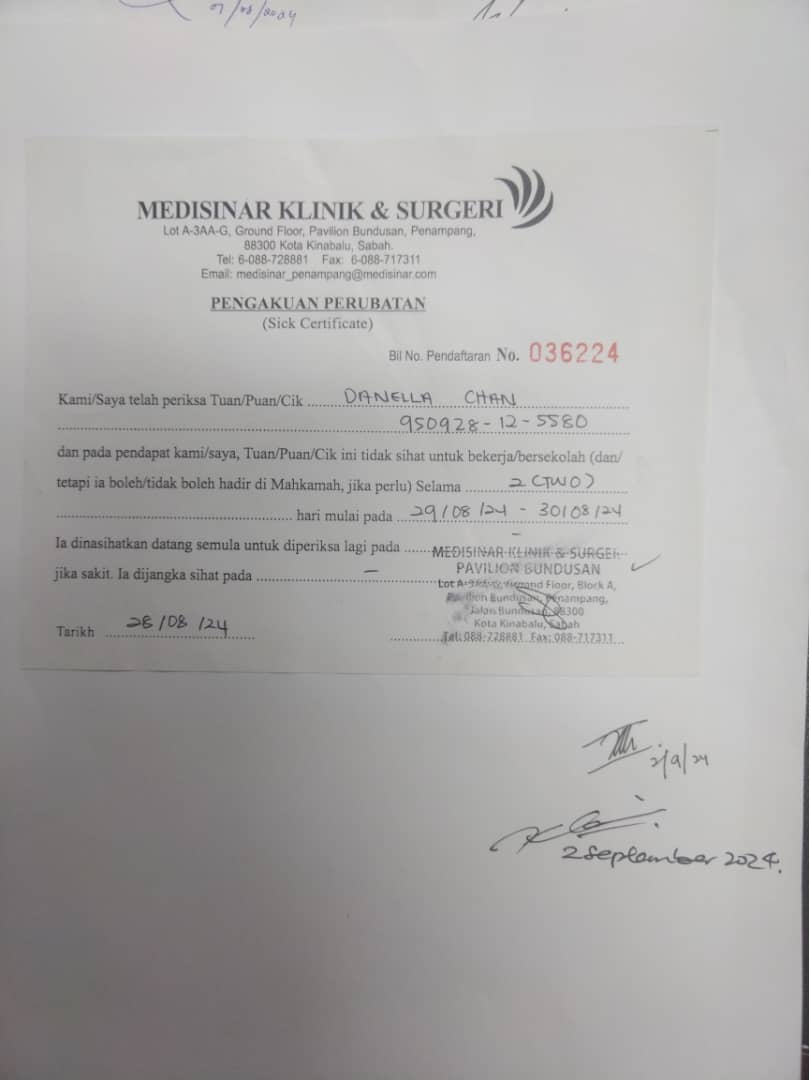 MEDISINAR KLINIK & SURGERI
Lot A-3AA-G, Ground Floor, Pavilion Bundusan, Penampang,
88300 Kota Kinabalu, Sabah.
Tel: 6-088-728881 Fax: 6-088-717311
Email: medisinar_penampang@medisinar.com
PENGAKUAN PERUBATAN
(Sick Certificate)
Bil No. Pendaftaran No. 036224
Kami/Saya telah periksa Tuan/Puan/Cik DANELLA CHAN
950928-12-5580
dan pada pendapat kami/saya, Tuan/Puan/Cik ini tidak sihat untuk bekerja/bersekolah (dan/
tetapi ia boleh/tidak boleh hadir di Mahkamah, jika perlu) Selama 2 (TWO)
hari mulai pada 29/08/24 - 30/08/24
Ia dinasihatkan datang semula untuk diperiksa lagi pada -
jika sakit. Ia dijangka sihat pada -
MEDISINAR KLINIK & SURGERI
PAVILION BUNDUSAN
Ground Floor, Block A,
Pavilion Bundusan, Penampang,
Jalan Bundusan, 88300
Kota Kinabalu, Sabah
Tel: 088-728881 Fax: 088-717311
Tarikh 28/08/24
2/9/24
2 September 2024.